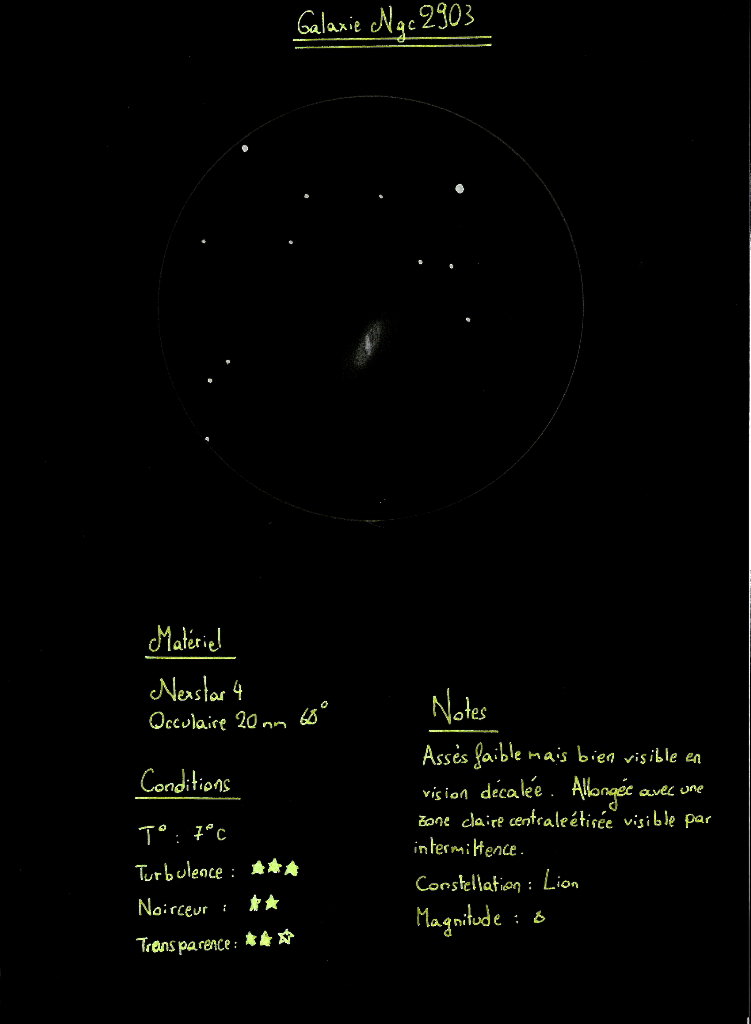 Galaxie Ngc 2903
Matériel
Nexstar 4
Occulaire 20 mm 68°
Conditions
T° : 7°C
Turbulence : ★★★
Noirceur : ★★
Transparence : ★★☆
Notes
Assés faible mais bien visible en
vision décalée. Allongée avec une
zone claire centrale étirée visible par
intermittence.
Constellation : Lion
Magnitude : 8